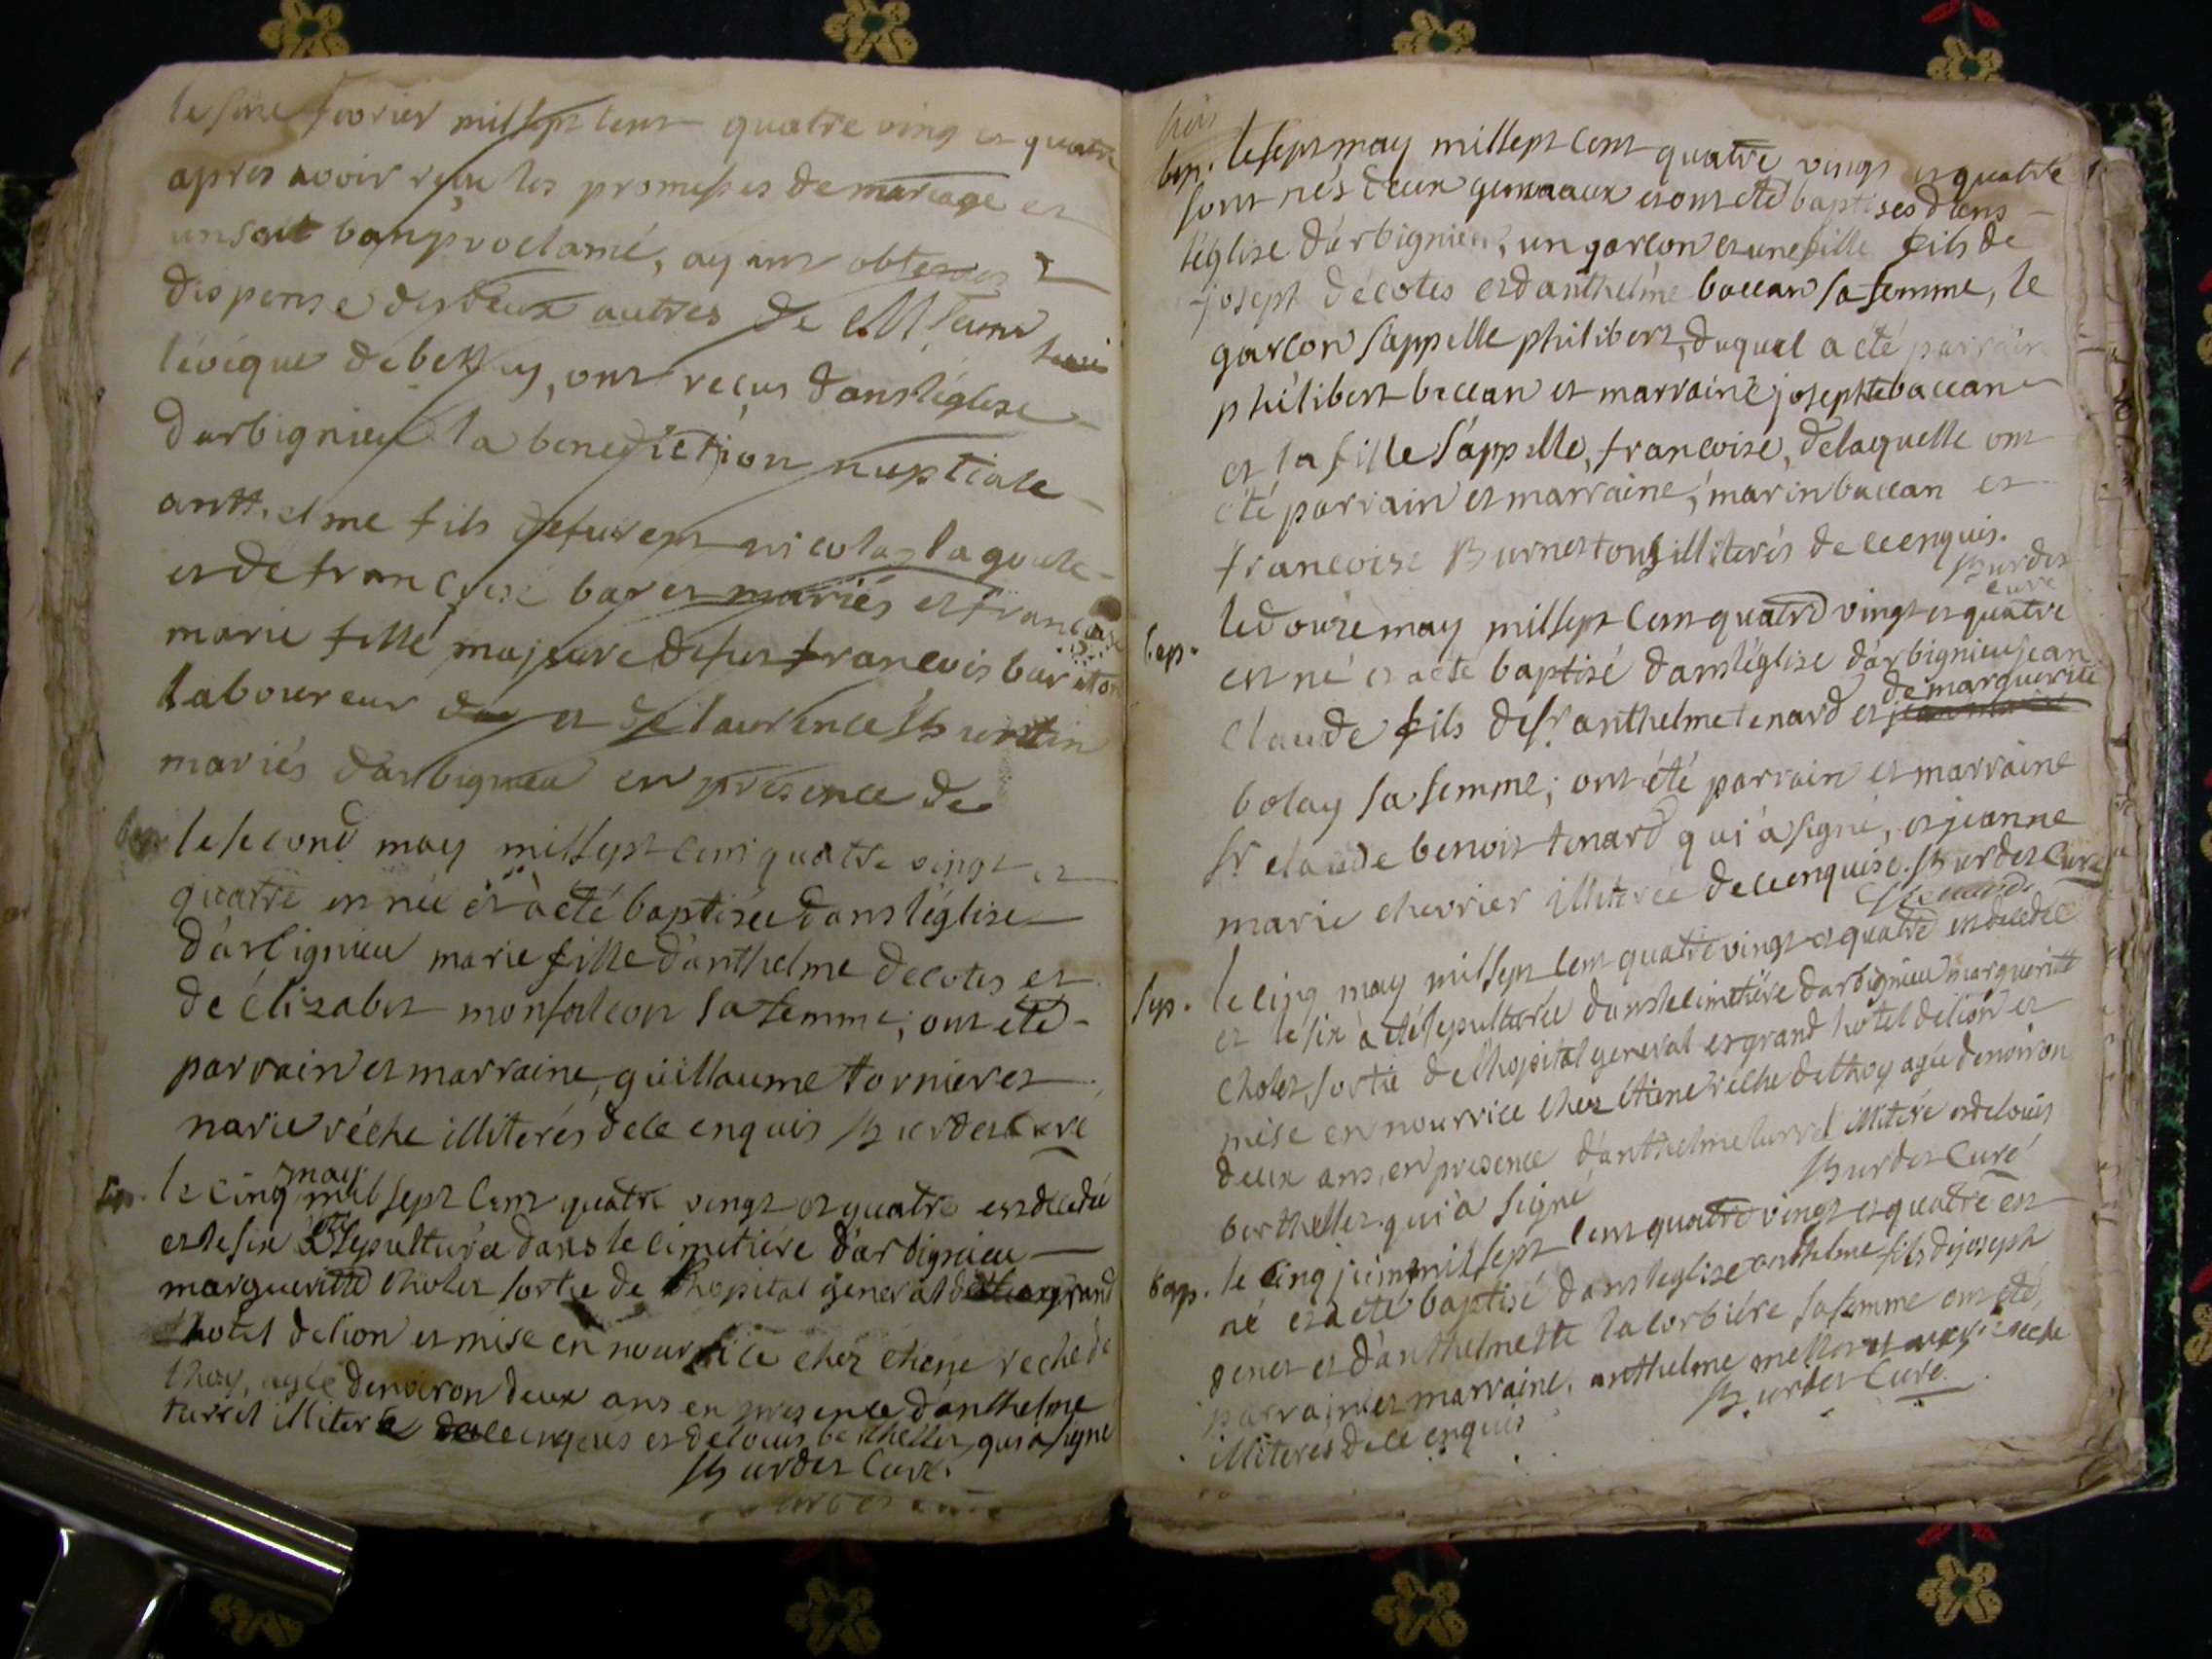 le  fevrier mil sept cent quatre ving et quatre
apres avoir reçu les promesses de mariage et
un seul ban proclamé, ayant obtenu
dispense des deux autres de
l'évêque de belley, ont reçus dans l'église
darbignieu la benediction nuptiale
anthelme fils de furent nicolas lagoute
et de françoise baret mariés et françoise
marie fille majeure de feu francois bar
laboureur et de laurence
mariés d'arbignieu en présence de
bap. le second may mil sept cent quatre vingt et
quatre est née et à été baptisée dans l'église
d'arbignieu marie fille d'anthelme decotes et
de élizabet monfalcon sa femme; ont été
parrain et marraine, guillaume tornier et
marie réche illiterés de ce enquis Burdet curé
sep. le cinq may mil sept cent quatre vingt et quatre est decedée
et le six a été sepulturée dans le cimetiére d'arbignieu
marguerite cholet sortie de l'hopital general grand
hotel de lion et mise en nourrice chez etiene reche de
thoy, agée denviron deux ans en presence d'anthelme
turrel illiteré de ce enquis et de louis berthellet qui a signé
Burdet curé.
bap. le sept may mil sept cent quatre vingt et quatre
sont nés deux gemeaux et ont été baptisés dens
l'église d'arbignieu, un garcon et une fille fils de
joseph décotes et d'anthelme baccan sa femme, le
garcon s'appelle philibert, duquel a été parrain
philibert baccan et marraine josephte baccan
et la fille s'appelle, francoise, de laquelle ont
été parrain et marraine, marin baccan et
francoise Burnet tous illiterés de ce enquis.
Burdet
curé
bap. le douze may mil sept cent quatre vingt et quatre
est né et a été baptisé dans l'église d'arbignieu jean
claude fils de sr anthelme tenard et de marguerite
bolay sa femme; ont été parrain et marraine
sr claude benoit tenard qui a signé, et jeanne
marie chevrier illiterée de ce enquise. Burdet curé
tenard
sep. le cinq may mil sept cent quatre vingt et quatre est decedée
et le six a été sepulturée dans le cimetiére d'arbignieu marguerite
cholet sortie de l'hopital general et grand hotel de lion et
mise en nourrice chez etiene réche de thoy agée denviron
deux ans, en presence d'anthelme turrel illiteré et de louis
berthellet qui à signé Burdet curé
bap. le cinq juin mil sept cent quatre vingt et quatre est
né et a été baptisé dans l'eglise anthelme fils de joseph
genet et d'anthelmette lacorbiére sa femme ont été
parrain et marraine, anthelme mellon et reche
illiterés de ce enquis Burdet curé.